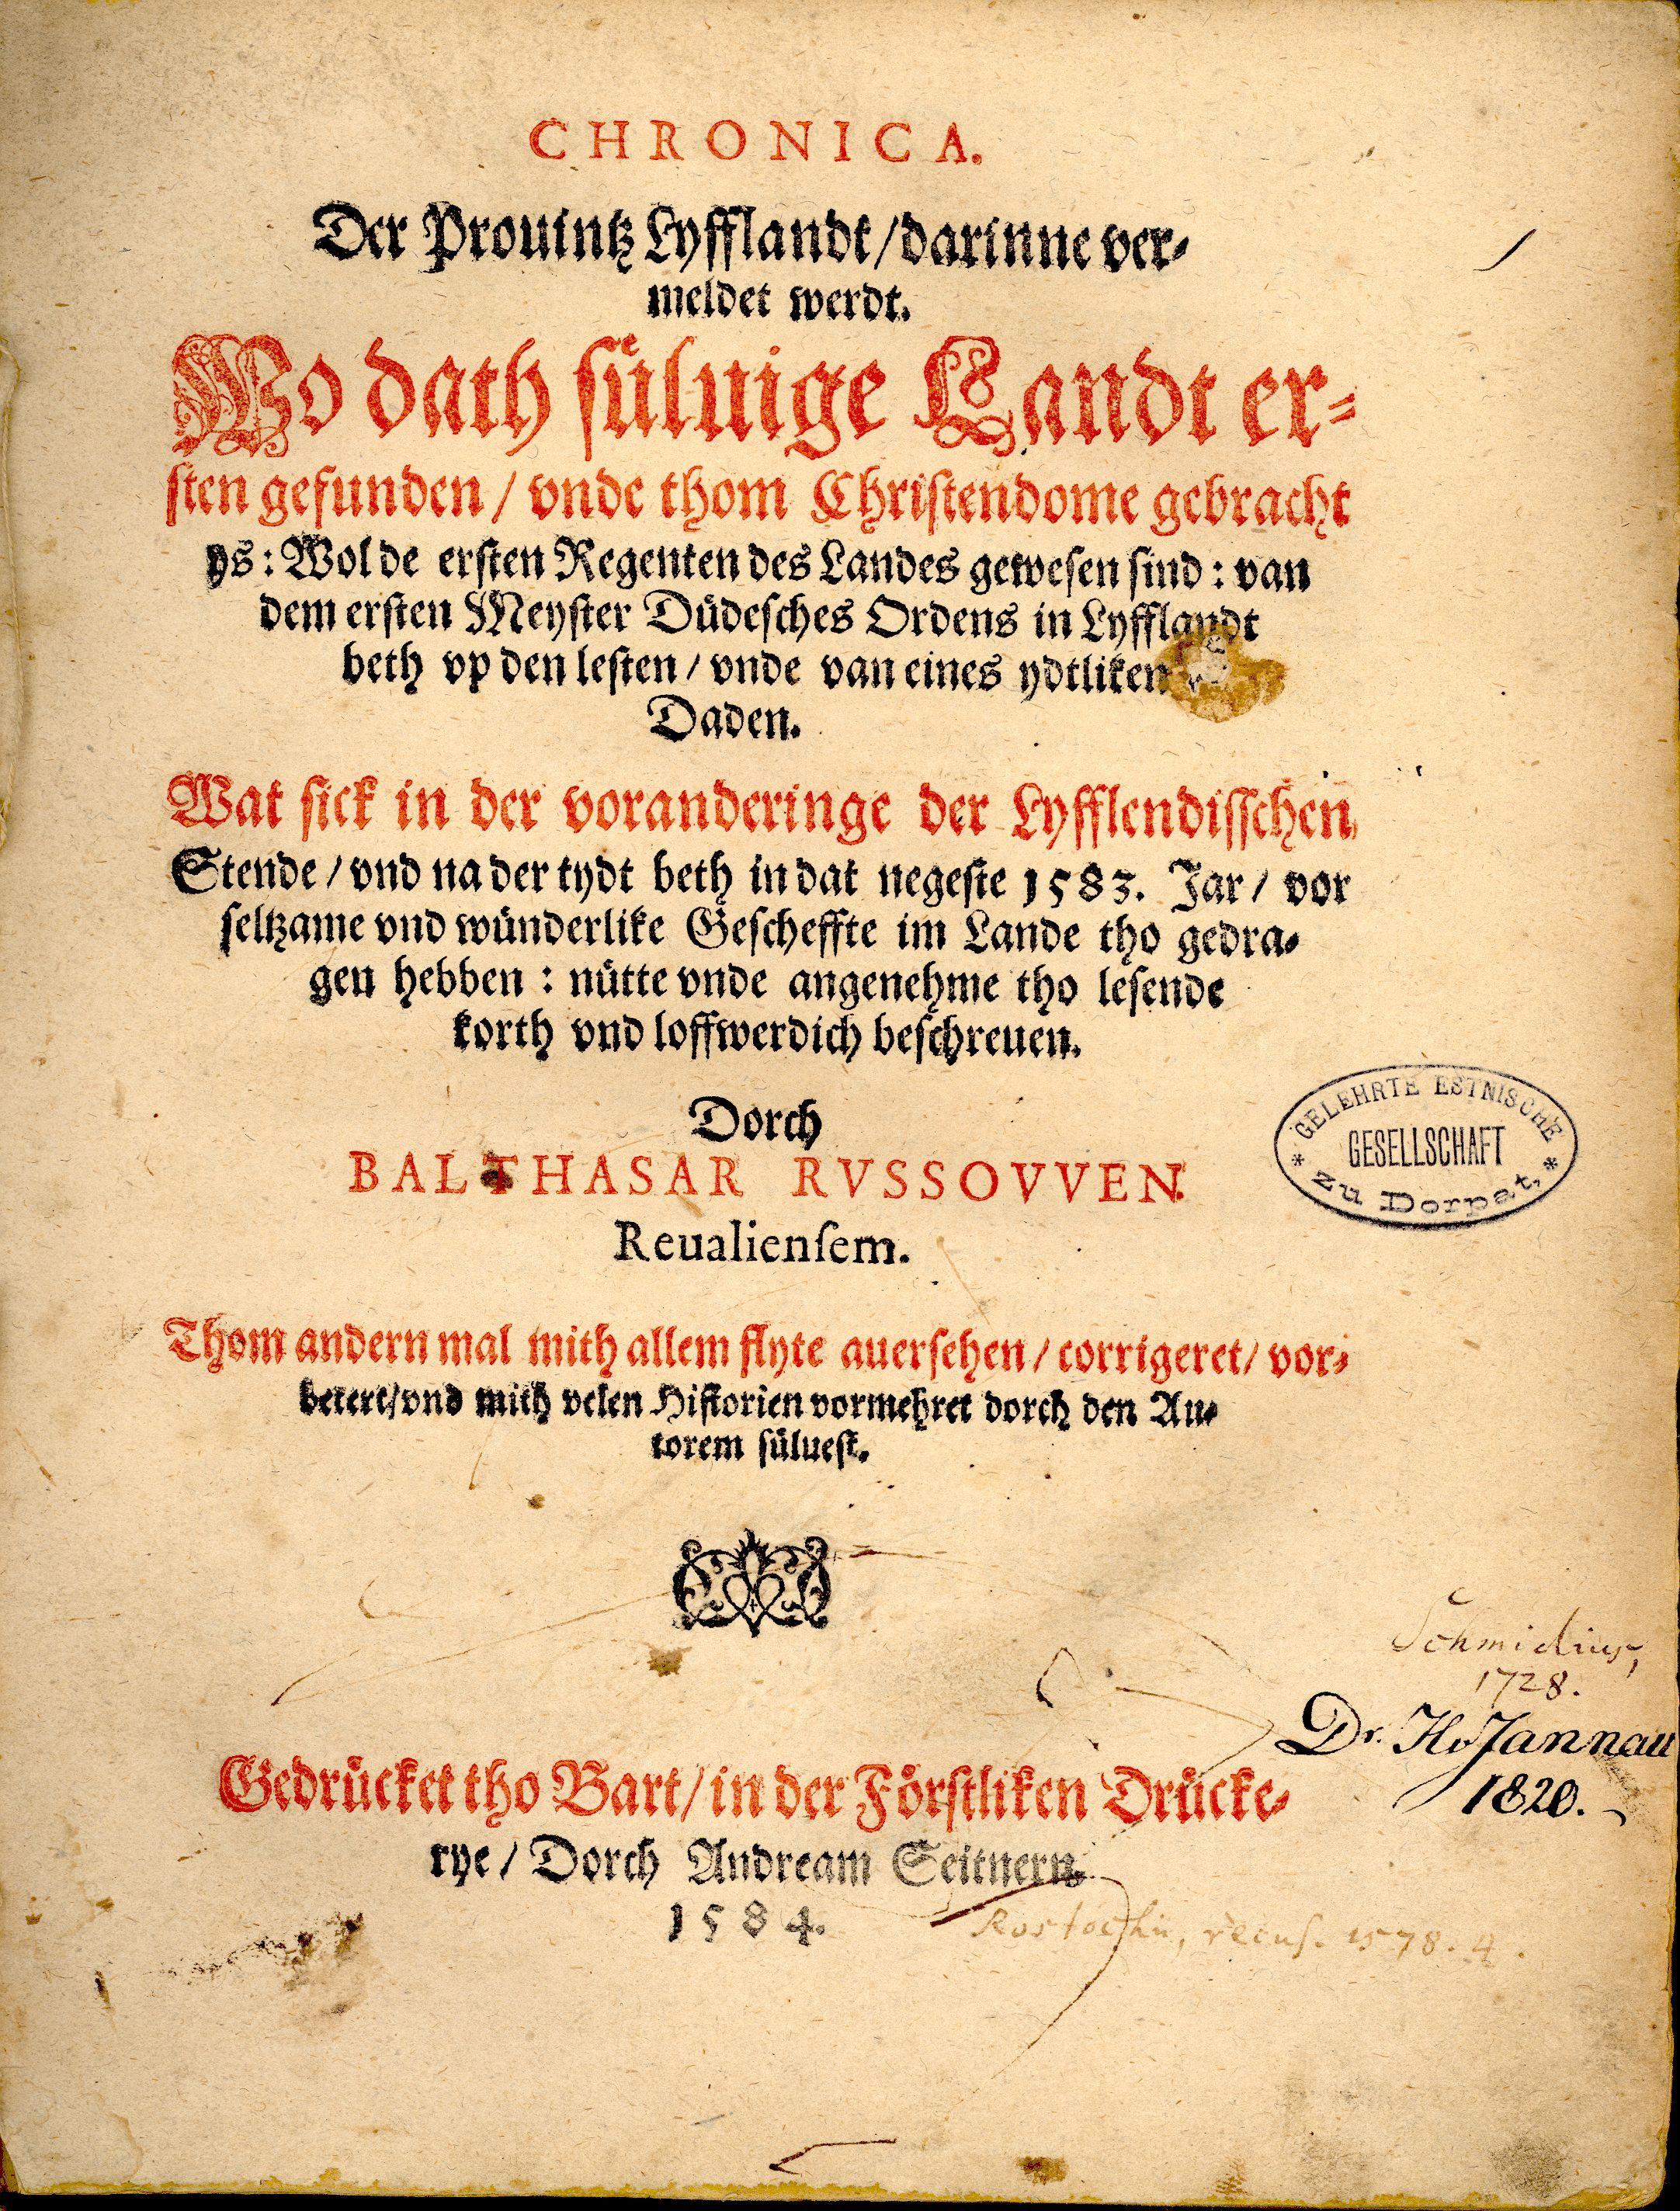 CHRONICA.
Der Prouintz Lyfflandt/darinne ver-
meldet werdt.
Wo dath süluige Landt er-
sten gefunden / vnde thom Christendome gebracht
ys: Wol de ersten Regenten des Landes gewesen sind: van
dem ersten Meyster Düdesches Ordens in Lyfflandt
beth vp den lesten / vnde van eines ydtliken
Daden.
Wat sick in der voranderinge der Lyfflendisschen
Stende / vnd na der tydt beth in dat negeste 1583. Jar / vor
seltzame vnd wünderlike Gescheffte im Lande tho gedra-
gen hebben: nütte vnde angenehme tho lesende
korth vnd loffwerdich beschreuen.
Dorch
BALTHASAR RVSSOVVEN.
Reualiensem.
GELEHRTE ESTNISCHE
* GESELLSCHAFT *
zu Dorpat.
Thom andern mal mith allem flyte auersehen / corrigeret/ vor-
betert/vnd mith velen Historien vormehret dorch den Au-
torem süluest.
Schmidius,
1728.
Dr. H. Jannau
1820.
Gedrücket tho Bart/ in der Förstliken Drücke-
rye / Dorch Andream Seitnern.
1584.
Rostochii, recus. 1578. 4.